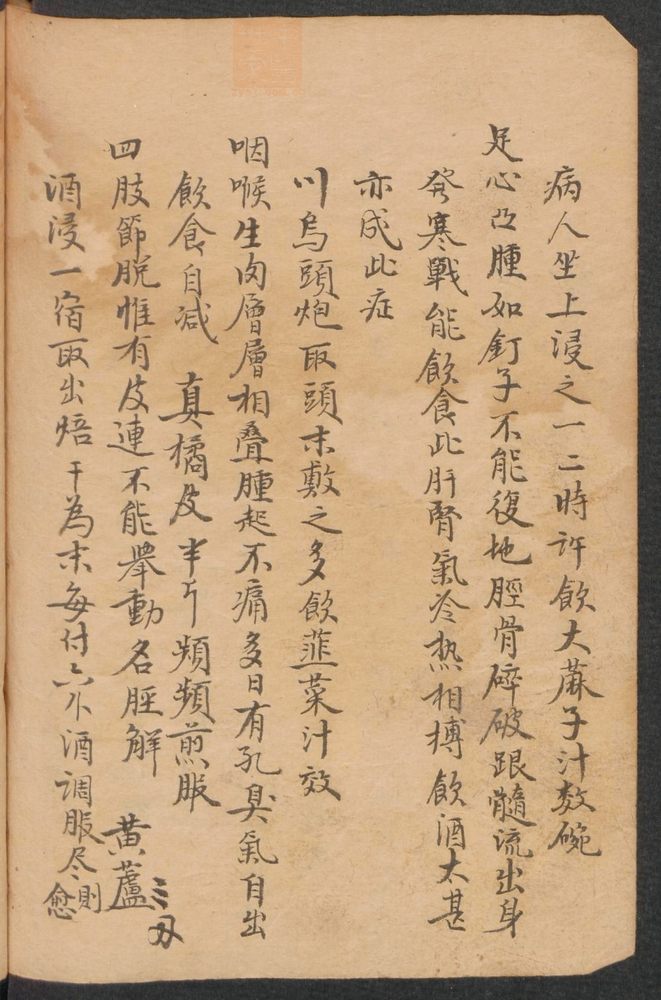 病人坐上浸之一二時許飲大蔴子汁数碗
足心凸腫如釘子不能復地脛骨碎破跟髓流出身
發寒戰能飲食此肝腎氣冷热相搏飲酒太甚
亦成此症
川烏頭炮取頭末敷之多飲韮菜汁效
咽喉生肉層層相叠腫起不痛多日有孔臭氣自出
飲食自减 真橘皮半斤頻頻煎服
四肢節脱惟有皮連不能舉動名脛解 黄蘆三刄
酒浸一宿取出焙干為末每付六小酒调服尽則愈